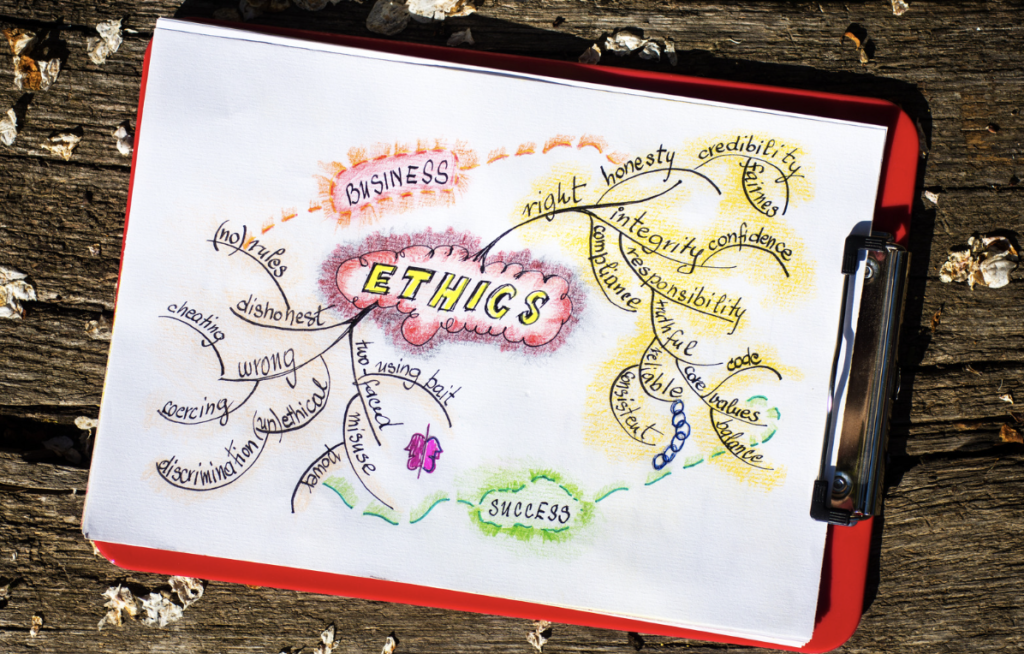 BUSINESS
ETHICS
right
honesty
credibility
fairnes
integrity
confidence
compliance
responsibility
truthful
reliable
consistent
core
code
values
balance
(no) rules
dishonest
cheating
wrong
coercing
(un)ethical
discrimination
two-faced
using bait
misuse
power
SUCCESS